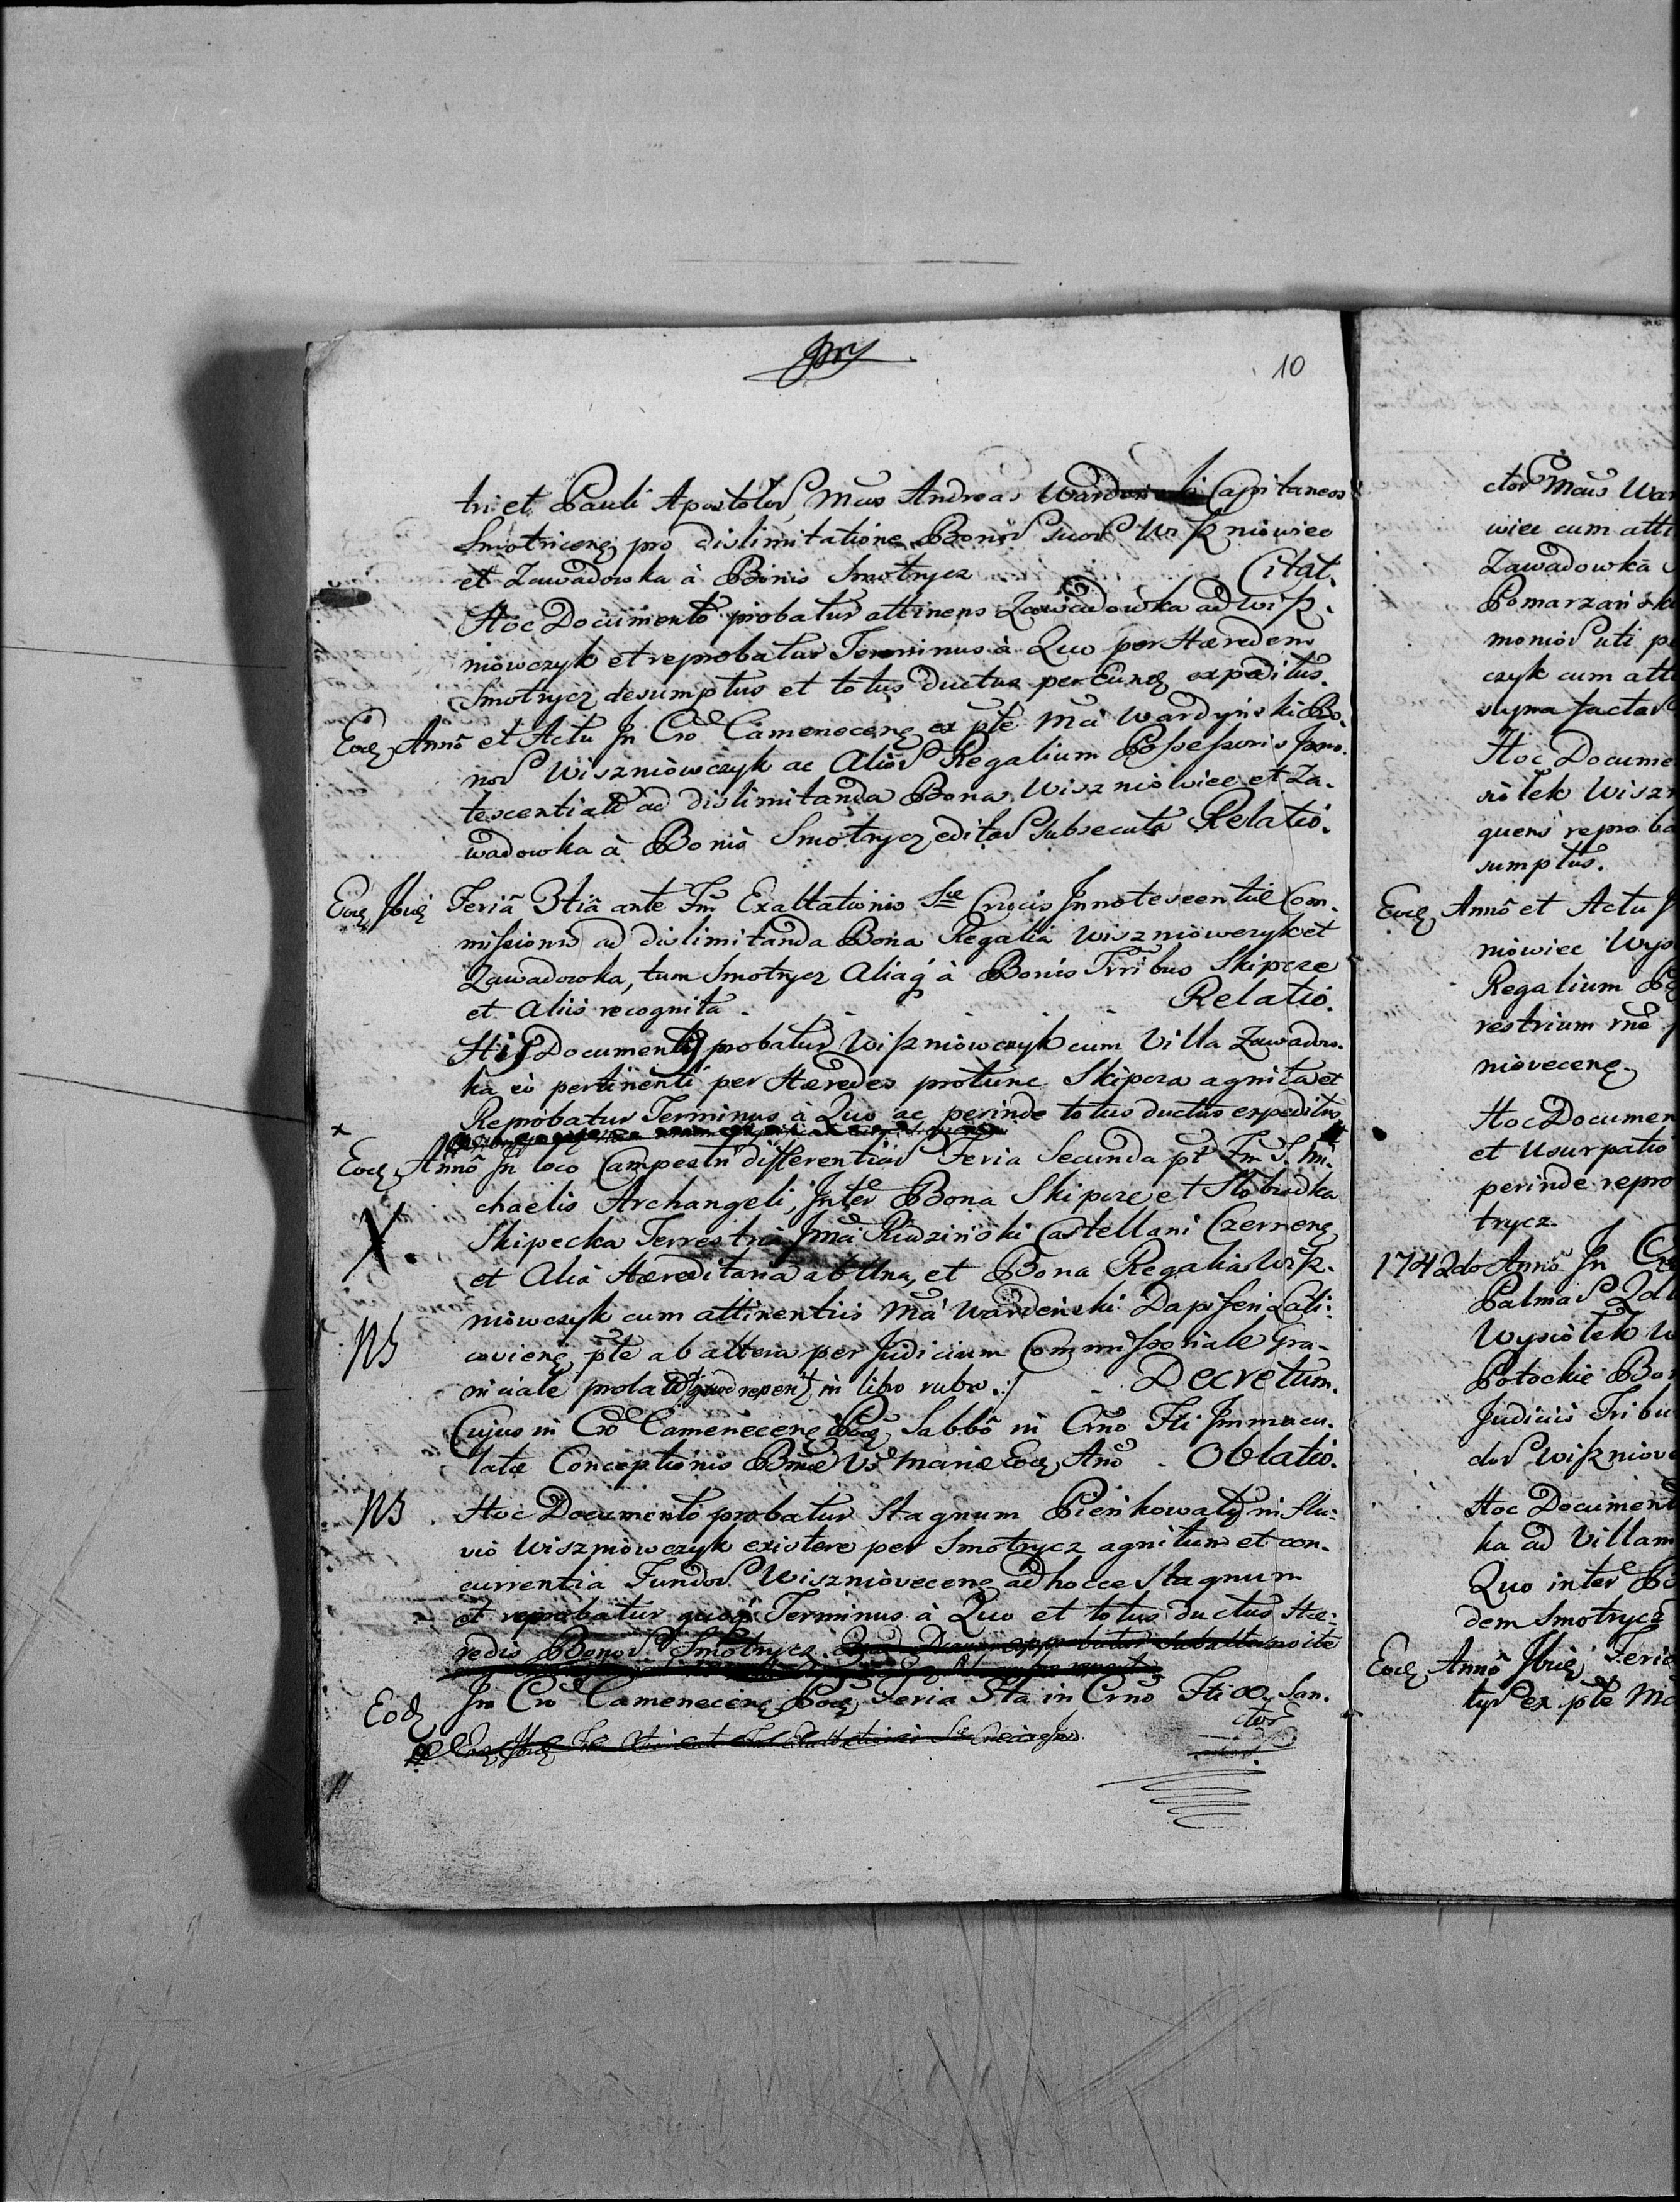 10
tri et Pauli Apostolor Mcus Andreas Capitaneos
Smotricens pro dislimitatione Bonor Suor Wiszniowiec
et Zawadowka à Bonis Smotrycz Citat.
Hoc Documento probatur attinens Zawadowka ad Wisz.
niowczyk et reprobatur Terminus à Quo per Hæredem
Smotrycz desumptus et totus ductus per eund expeditus.
Eod Anno et Actu In Cro Camenecens ex pte Mci Wardyński Bo.
nor Wiszniowczyk ac Alior Regalium Possessoris Inno.
tescentiar ad dislimitanda Bona Wiszniowiec et Za.
wadowka à Bonis Smotrycz editar Subsecuta Relatio.
Eod Ibid Feriâ 3tiâ ante Fm Exaltationis Stæ Crucis Innotescentiæ Com.
missionis ad dislimitanda Bona Regalia Wiszniowczyk et
Zawadowka, tum Smotrycz Aliaq à Bonis Trribus Skipcze
et Aliis recognita - Relatio.
His Documentis probatur Wiszniowczyk cum Villa Zawadow.
ka eò pertinenti per Hæredes protunc Skipcza agnita et
Reprobatur Terminus à Quo ac perinde totus ductus expeditus
x
Eod Anno In loco Campestri differentiar Feria Secunda pt Fm S. Mi.
chaelis Archangeli, Inter Bona Skipcze et Slobudka
X. Skipecka Terrestria Mci Rudziński Castellani Czernens
et Alia Hæreditaria ab Una, et Bona Regalia Wisz.
niowczyk cum attinentiis Mci Wardeński Dapiferi Cali:
NB coviens pte ab altera per Judicium Commissoriale Gra-
niciale prolat quod reperit in libro rubro :/ - Decretum.
Cujus in Cro Camenecens Pod Sabbo in Crno Fti Immacu.
latæ Conceptionis Bmæ Vis Mariæ Eod Ano - Oblatio.
NB Hoc Documento probatur Stagnum Pieńkowaty in flu:
vio Wiszniowczyk existere per Smotrycz agnitum et con.
currentia Fundor Wiszniovecens ad hocce Stagnum
et reprobatur quoq Terminus à Quo et totus ductus Hæ:
redis Bonor Smotrycz.
Eod In Cro Camenecens Pod Feria 5ta in Crno Fti OO. San.
ctor
ctor Mcus War
wiec cum atti
Zawadowka
Pomarzańska
monior uti p
czyk cum atti
Hoc Docume
siołek Wiszn
quens reproba
sumptus.
Eod Anno et Actu
niowiec Wys
Regalium
restrium
niovecens
Hoc Documen
et Usurpatio
perinde repro
trycz.
1742do Anno In Cro
Palmar
Wysiołek W
Potockie Bon
Judiciis Tribu
dor Wisznıow
Hoc Document
ka ad Villam
Quo inter Bo
dem Smotrycz
Eod Anno Ibid Feria
tyr ex pte Mc